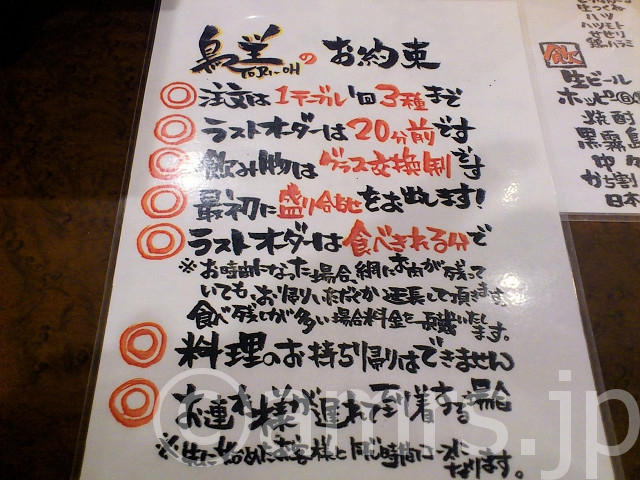 鳥羊のお約束
TORI-OH
◎注文は1テーブル1回3種まで
◎ラストオーダーは20分前です
◎飲み物はグラス交換制です
◎最初に盛り合わせをお出します!
◎ラストオーダーは食べきれる分で
※お時間になった場合、網にお肉が残って
いても、お帰りいただくか延長して頂きます
食べ残しが多い場合料金を頂戴いたします。
◎料理のお持ち帰りはできません
◎お連れ様が遅れて到着する場合
※先に始めたお客様と同じ時間
なります。
生つくね
ハツ
ハツモト
せせり
銀ハラミ
飲
生ビール
ホッピー
焼酎
黒霧島
日本
©amrs.jp